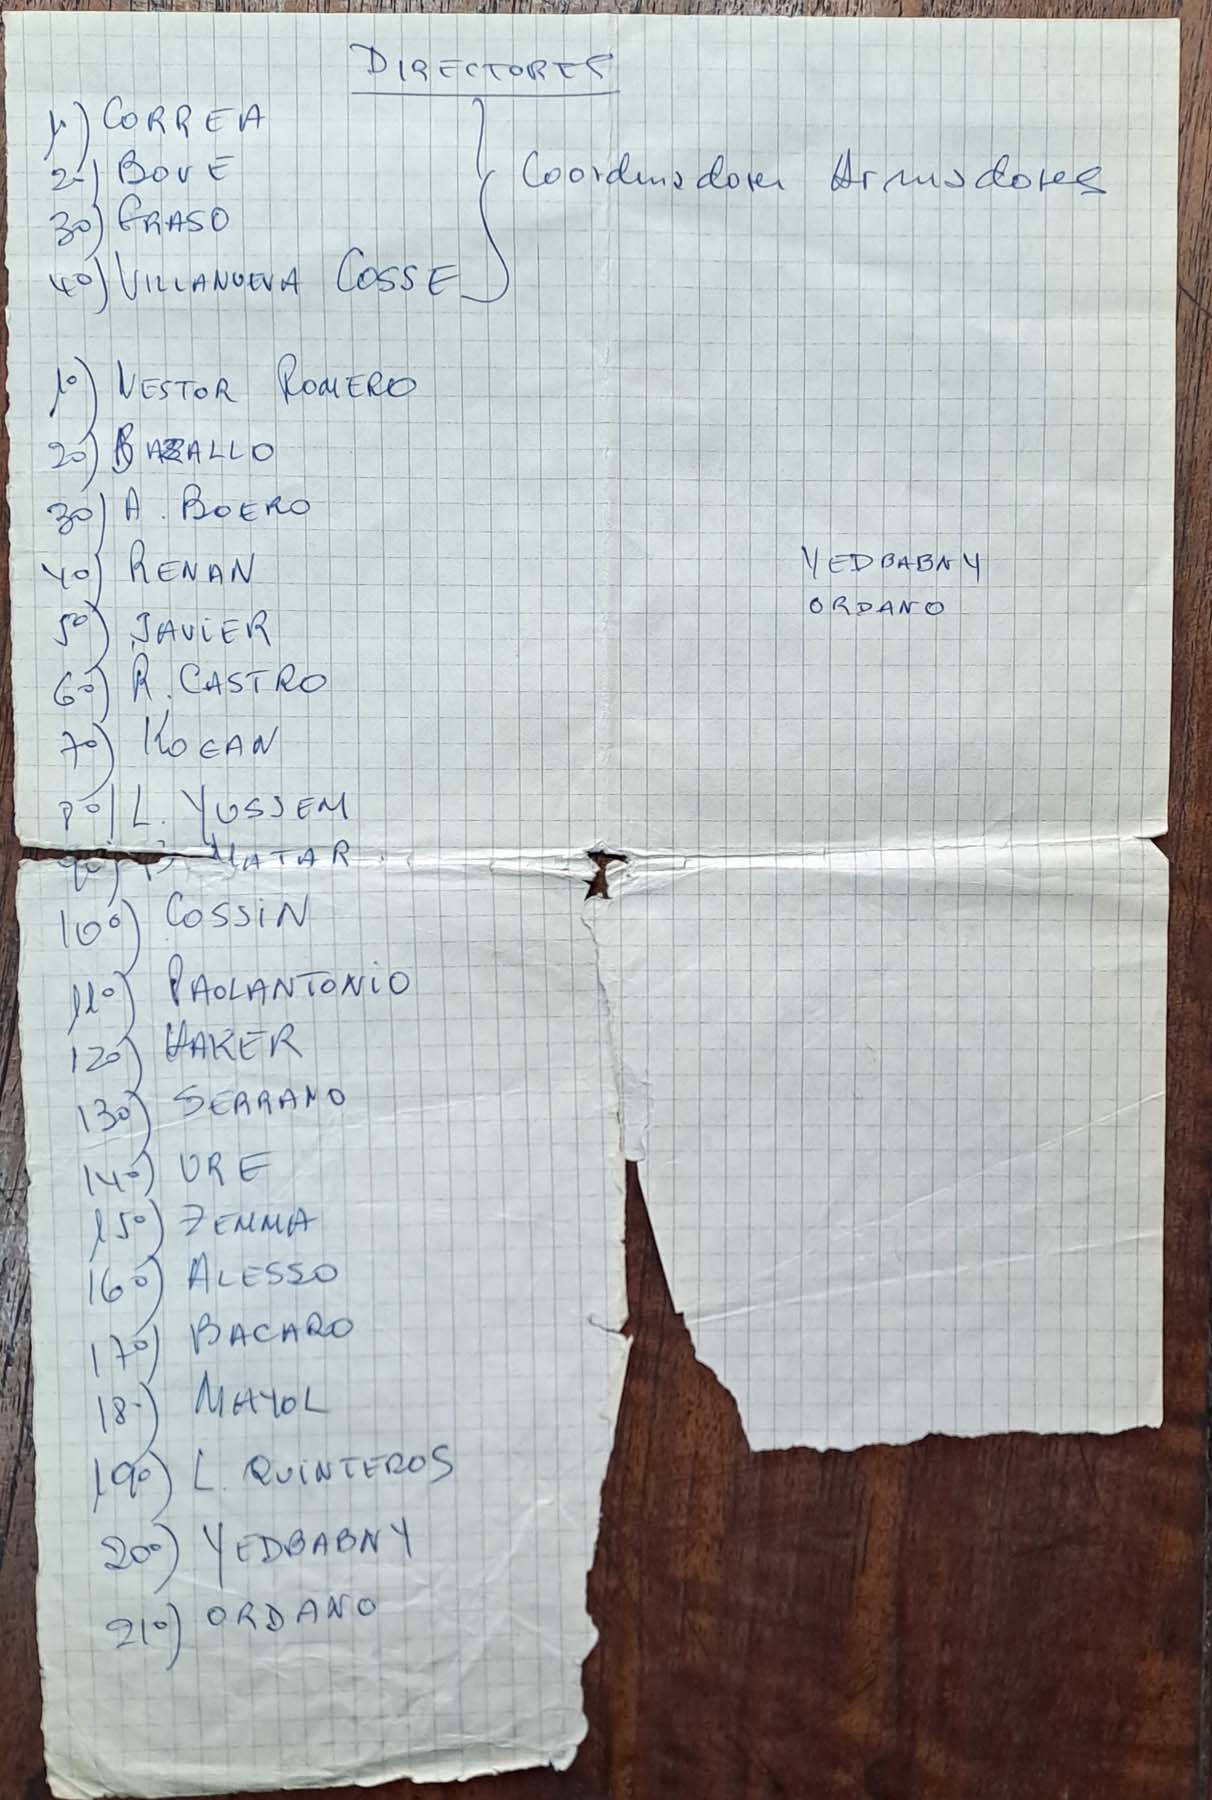 DIRECTORES
1º) CORREA
2º) BOVE
3º) GRASO
4º) VILLANUEVA COSSE
Coordinadores Armadores
1º) NESTOR ROMERO
2º) BAZALLO
3º) A. BOERO
4º) RENAN
5º) JAVIER
6º) R. CASTRO
7º) KOGAN
8º) L. YUSSEM
9º) MATAR
10º) COSSiN
11º) PAOLANTONiO
12º) HAKER
13º) SERRANO
14º) URE
15º) ZEMMA
16º) ALESSO
17º) BACARO
18º) MAYOL
19º) L. QUiNTEROS
20º) YEDBABNY
21º) ORDANO
YEDBABNY
ORDANO